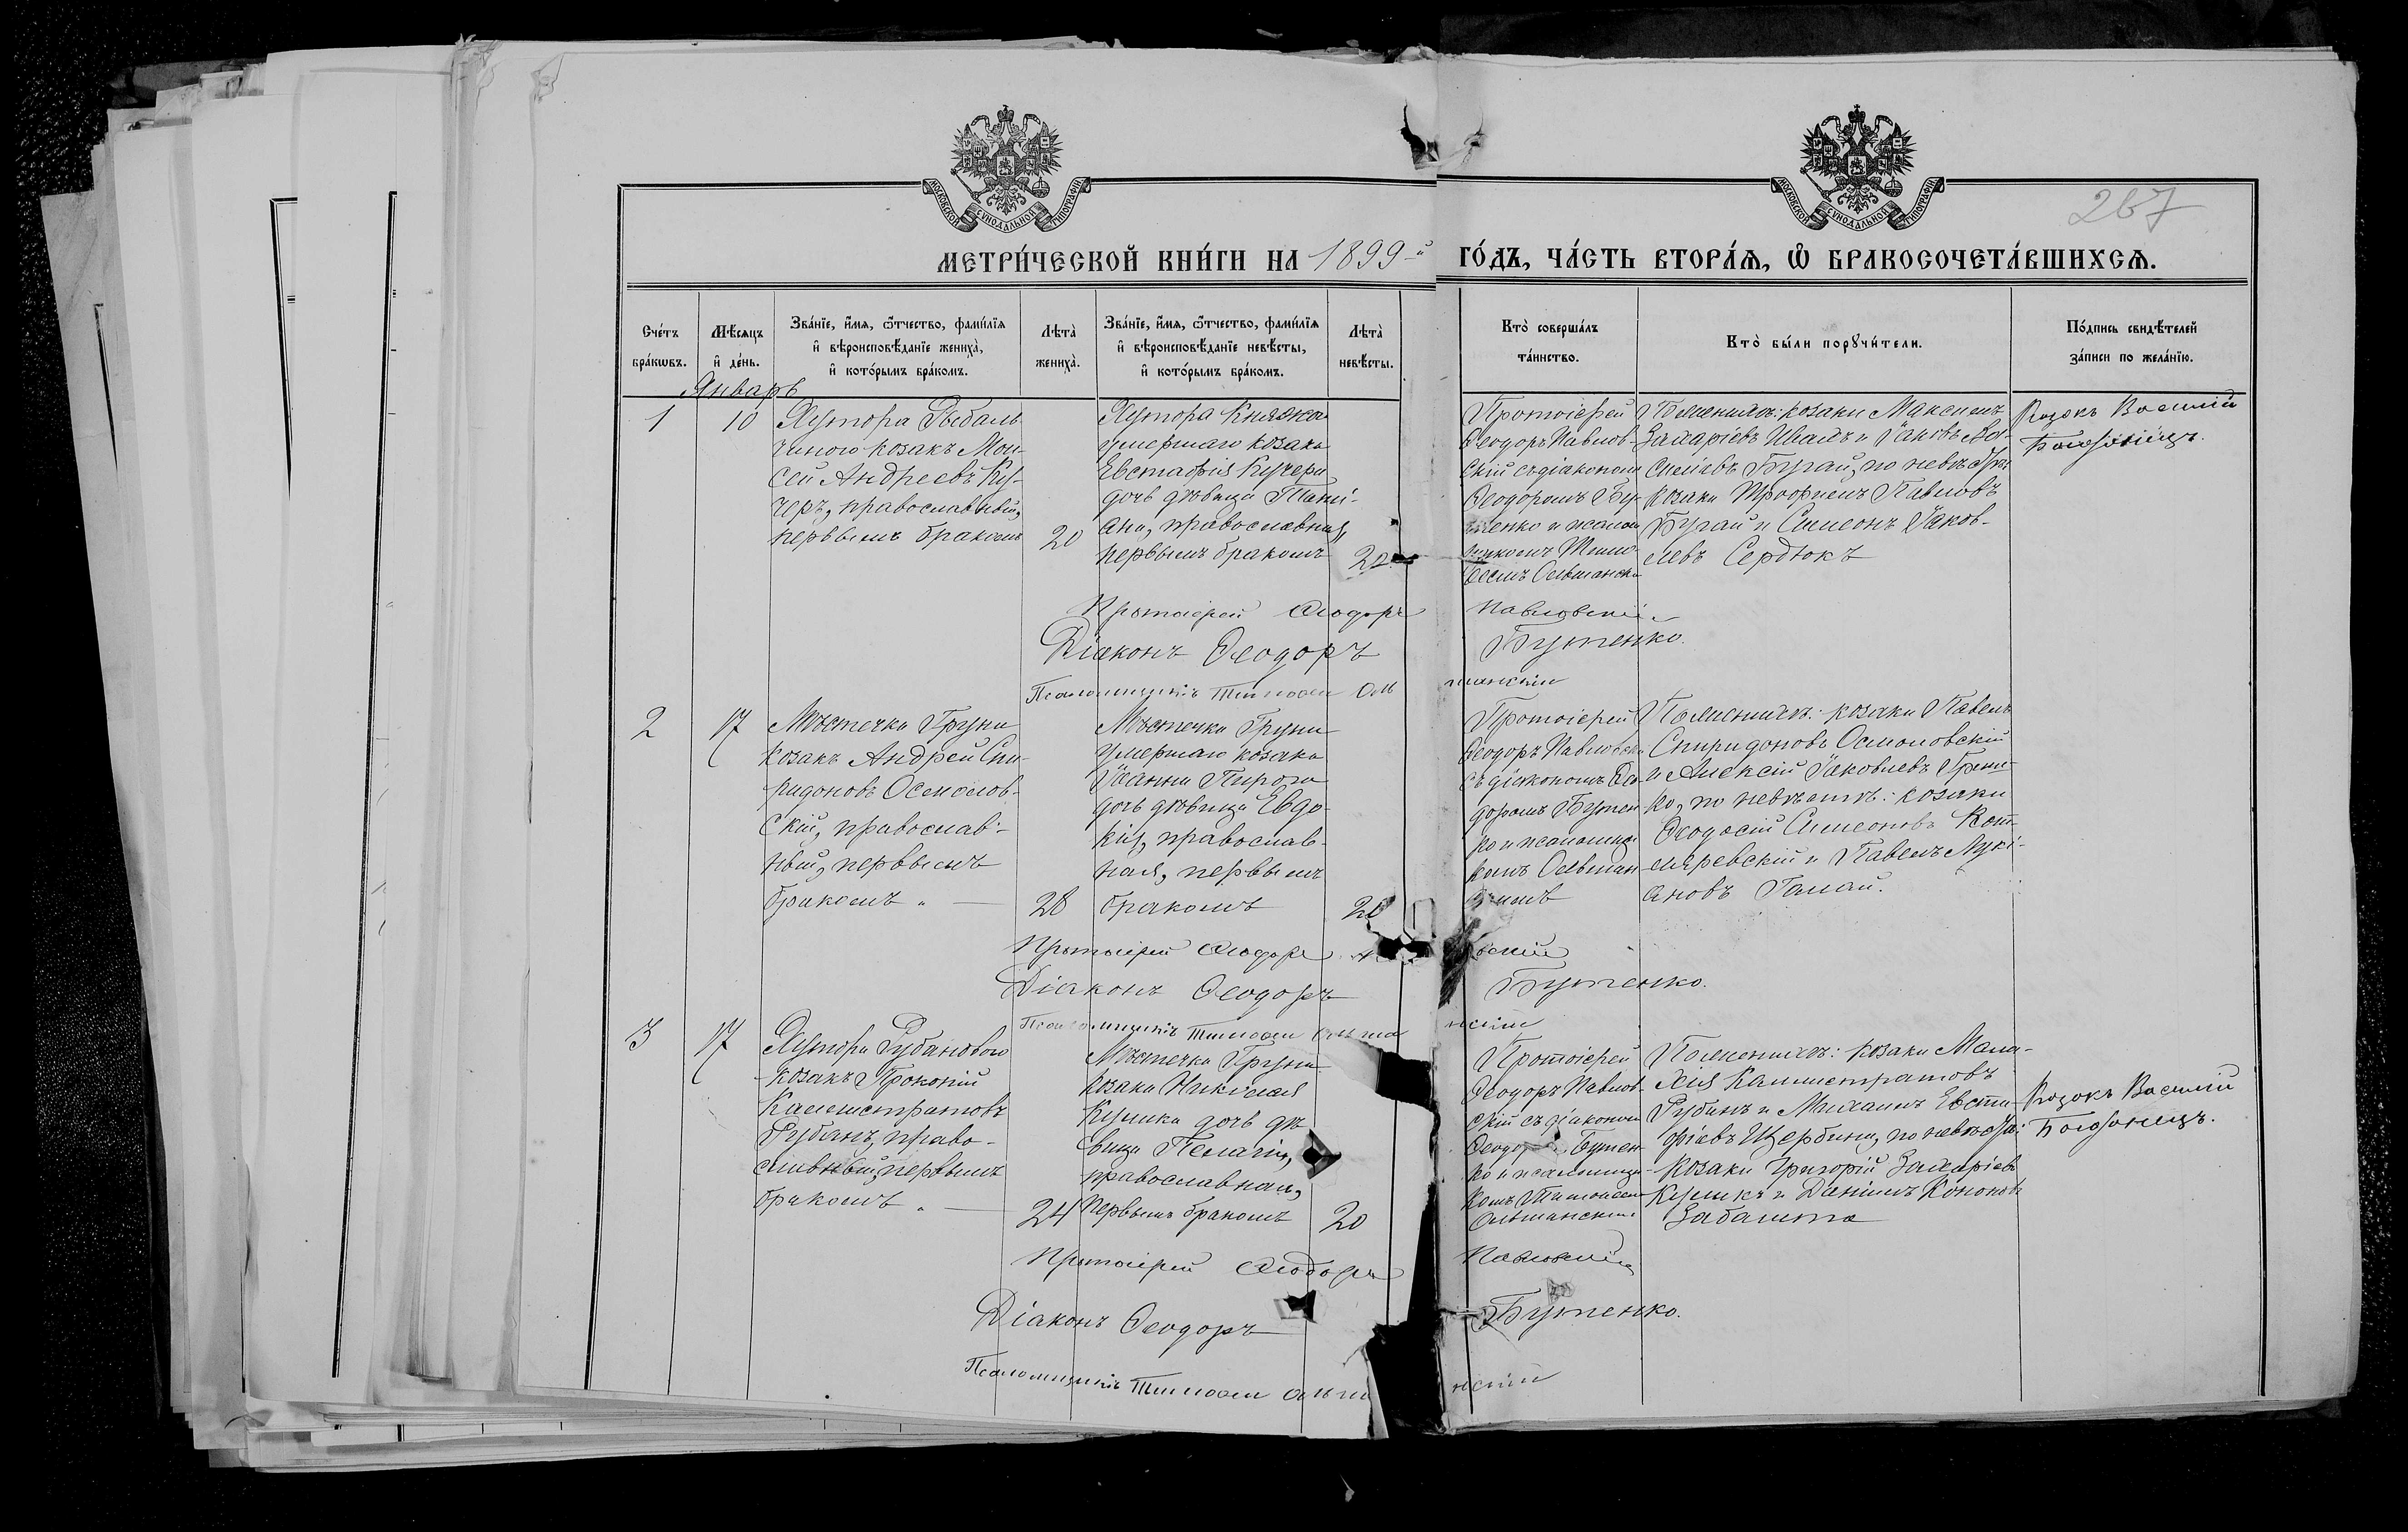 МОСКОВСКОЙ СѴНОДАЛЬНОЙ ТИПОГРАФІИ
МОСКОВСКОЙ СѴНОДАЛЬНОЙ ТИПОГРАФІИ
267
МЕТРИ́ЧЕСКОЙ КНИ́ГИ НА 1899-й ГО́ДЪ, ЧА́СТЬ ВТОРА́Ѧ, Ѡ҆ БРАКОСОЧЕТА́ВШИХСѦ.
Сче́тъ бра́кѡвъ.
Мѣ́сѧцъ и҆ де́нь.
Зва́нїе, и҆́мѧ, ѻ҆́тчество, фами́лїѧ и҆ вѣроисповѣ́данїе жениха̀, и҆ кото́рымъ бра́комъ.
Лѣта̀ жениха̀.
Зва́нїе, и҆́мѧ, ѻ҆́тчество, фами́лїѧ и҆ вѣроисповѣ́данїе невѣ́сты, и҆ кото́рымъ бра́комъ.
Лѣта̀ невѣ́сты.
Кто̀ соверша́лъ та́инство.
Кто̀ бы́ли порꙋчи́тели.
По́дпись свидѣ́телей за́писи по жела́нїю.
Январь
1
10
Хутора Рыбаль-
чиного козакъ Мои-
сей Андреевъ Ку-
черъ, православный,
первымъ бракомъ
20
Хутора Княжа
умершаго козака
Евстафія Кучера
дочь дѣвица Тати-
ана, православная,
первымъ бракомъ
20
Протоіерей
Ѳеодоръ Павлов-
скій съ діакономъ
Ѳеодоромъ Бу-
тенко и псалом-
щикомъ Тимо-
ѳеемъ Ольшански
По женихѣ: козаки Максимъ
Захаріевъ Иван и Іаковъ
Бугай, по невѣстѣ
козаки Трофимъ Павловъ
Бугай и Симеонъ Іаков-
левъ Сердюкъ
Козакъ Василій
Протоіерей Ѳеодоръ Павловскій
Діаконъ Ѳеодоръ Бутенко.
Псаломщикъ Тимоѳей Ольшанскій
2
17
Мѣстечка Груни
козакъ Андрей Спи-
ридоновъ Осмолов-
скій, православ-
ный, первымъ
бракомъ
28
Мѣстечка Груни
умершаго козака
Іоанна Пирога
дочь дѣвица Евдо-
кія, православ-
ная, первымъ
бракомъ
Протоіерей
Ѳеодоръ Павловскі
съ діакономъ Ѳео-
доромъ Бутен
ко и псаломщи
комъ Ольшан
скимъ
По женихѣ: козаки Павелъ
Спиридоновъ Осмоловскій
и Алексій Іаковлевъ
ко, по невѣстѣ: козаки
Ѳеодосій Симеоновъ Кот-
ляревскій и Павелъ Лукі-
ановъ Галай.
Протоіерей Ѳеодоръ вскій
Діаконъ Ѳеодоръ Бутенко.
Псаломщикъ Тимоѳей Ольшанскій
3
17
Хутора Рубанового
козакъ Прокопій
Каллистратовъ
Рубанъ, право-
славный, первымъ
бракомъ
24
Мѣстечка Груни
козака Николая
Кулика дочь дѣ-
вица Пелагія,
православная,
первымъ бракомъ
20
Протоіерей
Ѳеодоръ Павлов-
скій съ діакономъ
Ѳеодо Бутен-
ко и псаломщи-
комъ Тимоѳеемъ
Ольшанскимъ
По женихѣ: козаки Мала-
хія Каллистратовъ
Рубанъ и Михаилъ Евста-
фіевъ Щербина, по невѣстѣ:
козаки Григорій Захаріевъ
Куликъ и Даніилъ Кононовъ
Забашта
Козакъ Василій
Протоіерей Ѳеодоръ Павловскій
Діаконъ Ѳеодоръ Бутенко.
Псаломщикъ Тимоѳей Ольшанскій